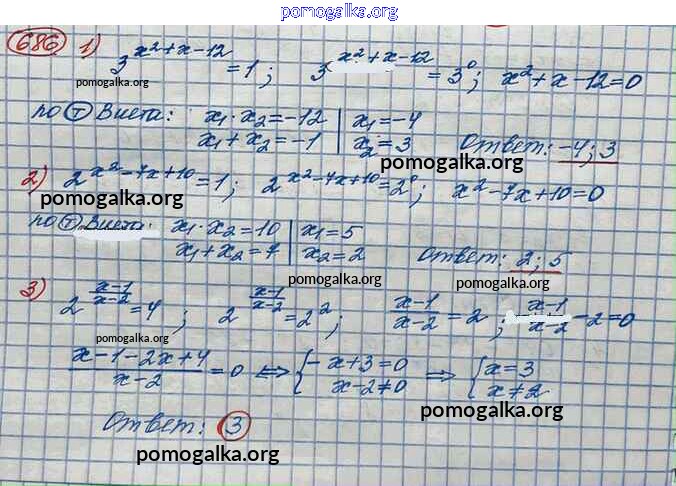 pomogalka.org
686 1) 3^(x²+x-12) = 1 ; 3^(x²+x-12) = 3⁰ ; x²+x-12=0
pomogalka.org
по Т Виета: x₁·x₂=-12 | x₁=-4
x₁+x₂=-1 | x₂=3 Ответ: -4; 3
pomogalka.org
2) 2^(x²-7x+10) = 1 ; 2^(x²-7x+10) = 2⁰ ; x²-7x+10=0
pomogalka.org
по Т Виета: x₁·x₂=10 | x₁=5
x₁+x₂=7 | x₂=2 Ответ: 2; 5
pomogalka.org pomogalka.org
3) 2^((x-1)/(x-2)) = 4 ; 2^((x-1)/(x-2)) = 2² ; (x-1)/(x-2) = 2 ; (x-1)/(x-2) - 2 = 0
pomogalka.org
(x-1-2x+4)/(x-2) = 0 ⇔ { -x+3=0 ; x-2≠0 ⇒ { x=3 ; x≠2
pomogalka.org
Ответ: 3
pomogalka.org